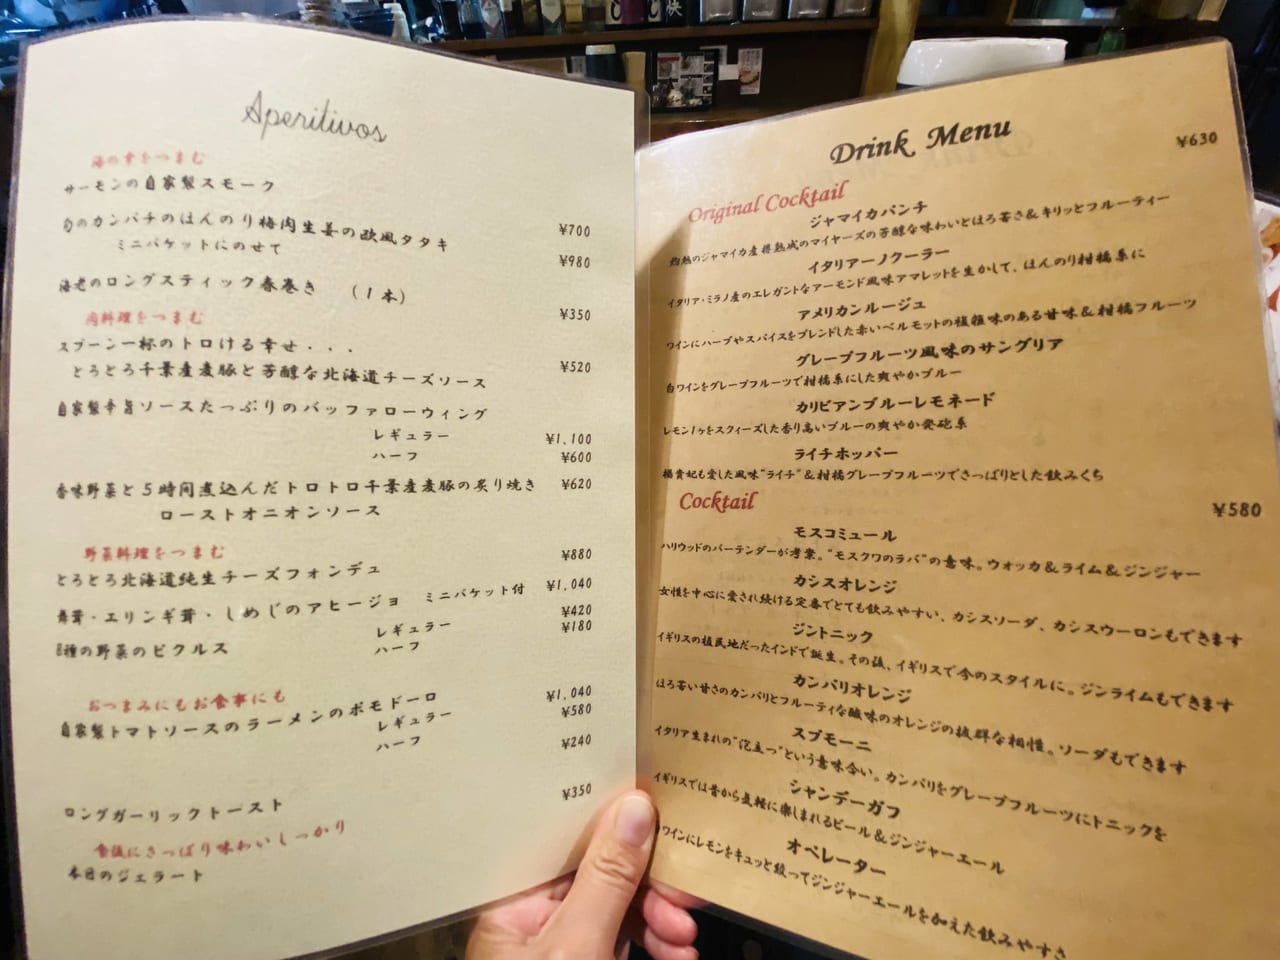 Aperitivos
海の幸をつまむ
サーモンの自家製スモーク ¥700
旬のカンパチのほんのり梅肉生姜の欧風タタキ ¥980
ミニバケットにのせて
海老のロングスティック春巻き (1本) ¥350
肉料理をつまむ
スプーン一杯のトロける幸せ・・・ ¥520
とろとろ千葉産麦豚と芳醇な北海道チーズソース
自家製辛旨ソースたっぷりのバッファローウィング
レギュラー ¥1,100
ハーフ ¥600
香味野菜と5時間煮込んだトロトロ千葉産麦豚の炙り焼き ¥620
ローストオニオンソース
野菜料理をつまむ
とろとろ北海道純生チーズフォンデュ ¥880
舞茸・エリンギ茸・しめじのアヒージョ ミニバケット付 ¥1,040
8種の野菜のピクルス レギュラー ¥420
ハーフ ¥180
おつまみにもお食事にも
自家製トマトソースのラーメンのポモドーロ
レギュラー ¥1,040
ハーフ ¥580
ロングガーリックトースト ¥240
食後にさっぱり味わいしっかり
本日のジェラート ¥350
Drink Menu
Original Cocktail ¥630
ジャマイカパンチ
灼熱のジャマイカ産樽熟成のマイヤーズの芳醇な味わいとほろ苦さ＆キリッとフルーティー
イタリアーノクーラー
イタリア・ミラノ産のエレガントなアーモンド風味アマレットを生かして、ほんのり柑橘系に
アメリカンルージュ
ワインにハーブやスパイスをブレンドした赤いベルモットの複雑味のある甘味＆柑橘フルーツ
グレープフルーツ風味のサングリア
白ワインをグレープフルーツで柑橘系にした爽やかブルー
カリビアンブルーレモネード
レモン1ヶをスクィーズした香り高いブルーの爽やか発砲系
ライチホッパー
楊貴妃も愛した風味"ライチ"＆柑橘グレープフルーツでさっぱりとした飲みくち
Cocktail ¥580
モスコミュール
ハリウッドのバーテンダーが考案。"モスクワのラバ"の意味。ウォッカ＆ライム＆ジンジャー
カシスオレンジ
女性を中心に愛され続ける定番でとても飲みやすい、カシスソーダ、カシスウーロンもできます
ジントニック
イギリスの植民地だったインドで誕生。その後、イギリスで今のスタイルに。ジンライムもできます
カンパリオレンジ
ほろ苦い甘さのカンパリとフルーティな酸味のオレンジの抜群な相性。ソーダもできます
スプモーニ
イタリア生まれの"泡立つ"という意味合い。カンパリをグレープフルーツにトニックを
シャンデーガフ
イギリスでは昔から気軽に楽しまれるビール＆ジンジャーエール
オペレーター
白ワインにレモンをキュッと絞ってジンジャーエールを加えた飲みやすさ